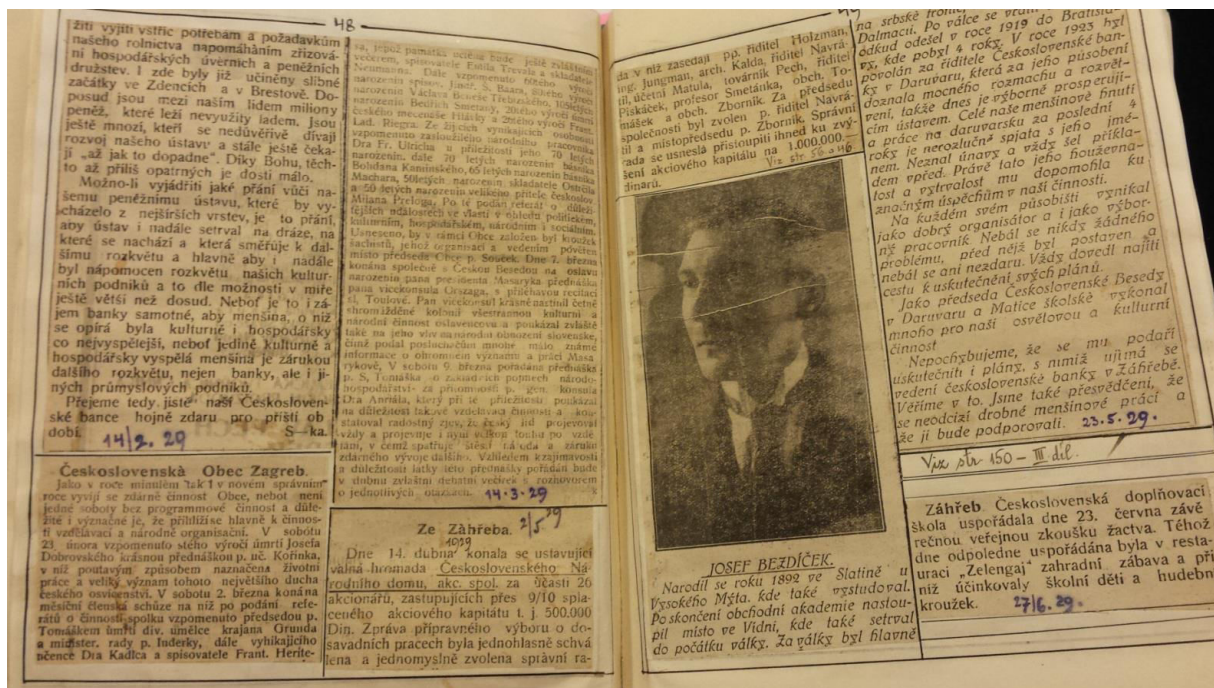 48
žiti vyjíti vstříc potřebám a požadavkům
našeho rolnictva napomáháním zřizová-
ní hospodářských úvěrních a peněžních
družstev. I zde byly již učiněny slibné
začátky ve Zdencích a v Brestově. Do-
posud jsou mezi naším lidem miliony
peněz, které leží nevyužity ladem. Jsou
ještě mnozí, kteří se nedůvěřivě dívají
rozvoj našeho ústavu a stále ještě čeka-
jí „až jak to dopadne". Díky Bohu, těch-
to až příliš opatrných je dosti málo.
Možno-li vyjádřiti jaké přání vůči na-
šemu peněžnímu ústavu, které by vy-
cházelo z nejširších vrstev, je to přání,
aby ústav i nadále setrval na dráze, na
které se nachází a která směřuje k dal-
šímu rozkvětu a hlavně aby i nadále
byl nápomocen rozkvětu našich kultur-
ních podniků a to dle možnosti v míře
ještě větší než dosud. Neboť je to i zá-
jem banky samotné, aby menšina, o niž
se opírá byla kulturně i hospodářsky
co nejvyspělejší, neboť jedině kulturně a
hospodářsky vyspělá menšina je zárukou
dalšího rozkvětu, nejen banky, ale i ji-
ných průmyslových podniků.
Přejeme tedy jistě naší Českosloven-
ské bance hojně zdaru pro příští ob
dobí. S—ka.
14/2. 29
Československá Obec Zagreb.
Jako v roce minulém tak i v novém správním
roce vyvíjí se zdárně činnost Obce, neboť není
jedné soboty bez programmové činnost a důle-
žité i význačné je, že přihlíží se hlavně k činnos-
ti vzdělávací a národně organisační. V sobotu
23. února vzpomenuto stého výročí úmrtí Josefa
Dobrovského krásnou přednáškou p. uč. Kořínka,
v níž poutavým způsobem naznačena životní
práce a veliký význam tohoto největšího ducha
českého osvícenství. V sobotu 2. března konána
měsíční členská schůze na níž po podání refe-
rátů o činnosti spolku vzpomenuto předsedou p.
Tomáškem úmrtí div. umělce krajana Grunda
a minister. rady p. Inderky, dále vynikajícího
učence Dra Kadlca a spisovatele Frant. Herite-
sa, jehož památka uctěna bude ještě zvláštním
večerem, spisovatele Emila Trevala a skladatele
Neumanna. Dále vzpomenuto 60tého výročí
narození spisov. Jindř. S. Baara, 80tého výročí
narození Václava Beneše Třebízského, 105tého
narození Bedřich Smetany, 20tého výročí úmrtí
českého mecenáše Hlávky a 26tého výročí Frant.
Lad. Riegra. Ze žijících vynikajících osobností
vzpomenuto zasloužilého národního pracovníka
Dra Fr. Ulricha u příležitosti jeho 70 letých
narozenin, dále 70 letých narozenin básníka
Bohdana Kaminského, 65 letých narozenin básníka
Machara, 50letých narozenin skladatele Ostrčila
a 50 letých narozenin velikého přítele českoslov.
Milana Preloga. Po té podán referát o důleži-
tějších událostech ve vlasti v ohledu politickém,
kulturním, hospodářském, národním i sociálním.
Usneseno, by v rámci Obce založen byl kroužek
šachistů, jehož organisací a vedením pověřen
místo předseda Obce p. Souček. Dne 7. března
konána společně s Českou Besedou na oslavu
narozenin pana presidenta Masaryka přednáška
pana vicekonsula Orszaga, s přiléhavou recitací
sl. Toulové. Pan vicekonsul krásně nastínil četně
shromážděné kolonii všestrannou kulturní a
národní činnost oslavencovu a poukázal zvláště
také na jeho vliv na národní obrození slovenské,
čímž podal posluchačům mnohé málo známé
informace o ohromném významu a práci Masa-
rykově. V sobotu 9. března pořádána přednáška
p. S. Tomáška o základních pojmech národo-
hospodářství za přítomnosti p. gen. konsula
Dra Anriála, který při té příležitosti poukázal
na důležitost takové vzdělávací činnosti a kon-
statoval radostný zjev, že český lid projevoval
vždy a projevuje i nyní velkou touhu po vzdě-
lání, v čemž spatřuje štěstí národa a záruku
zdárného vývoje dalšího. Vzhledem k zajímavosti
a důležitosti látky této přednášky pořádán bude
v dubnu zvláštní debatní večírek s rozhovorem
o jednotlivých otázkách. k
14.3.29
Ze Záhřeba. 2/5 29
1929
Dne 14. dubna konala se ustavující
valná hromada Československého Ná-
rodního domu, akc. spol. za účasti 26
akcionářů, zastupujících přes 9/10 spla-
ceného akciového kapitátu t. j. 500.000
Din. Zpráva přípravného výboru o do-
savadních pracech byla jednohlasně schvá
lena a jednomyslně zvolena správní ra-
49
da v níž zasedají pp. řiditel Holzman,
ing. Jungman, arch. Kalda, řiditel Navrá-
til, účetní Matula, továrník Pech, řiditel
Piskáček, profesor Smetánka, obch. To-
mášek a obch. Zborník. Za předsedu
společnosti byl zvolen p. řiditel Navrá-
til a místopředsedu p. Zborník. Správní
rada se usnesla přistoupiti ihned ku zvý-
šení akciového kapitálu na 1.000.000.—
dinárů.
Viz str. 56. a 46
JOSEF BEZDÍČEK.
Narodil se roku 1892 ve Slatině u
Vysokého Mýta, kde také vystudoval.
Po skončení obchodní akademie nastou-
pil místo ve Vídni, kde také setrval
do počátku války. Za války byl hlavně
na srbské frontě,
Dalmacii. Po válce se vrátil
odkud odešel v roce 1919 do Bratisla-
vy, kde pobyl 4 roky. V roce 1923 byl
povolán za řiditele Československé ban-
ky v Daruvaru, která za jeho působení
doznala mocného rozmachu a rozvět-
vení, takže dnes je výborně prosperují-
cím ústavem. Celé naše menšinové hnutí
a práce na daruvarsku za poslední 4
roky je nerozlučně spjata s jeho jmé-
nem. Neznal únavy a vždy šel příkla-
dem vpřed. Právě tato jeho houževna-
tost a vytrvalost mu dopomohla ku
značným úspěchům v naší činnosti.
Na každém svém působišti vynikal
jako dobrý organisátor a i jako výbor-
ný pracovník. Nebál se nikdy žádného
problému, před nějž byl postaven a
nebál se ani nezdaru. Vždy dovedl najíti
cestu k uskutečnění svých plánů.
Jako předseda Československé Besedy
v Daruvaru a Matice školské vykonal
mnoho pro naši osvětovou a kulturní
činnost
Nepochybujeme, že se mu podaří
uskutečniti i plány, s nimiž ujímá se
vedení československé banky v Záhřebě.
Věříme v to. Jsme také přesvědčeni, že
se neodcizí drobné menšinové práci a
že ji bude podporovali. 23.5.29.
Viz str 150 – III díl.
Záhřeb. Československá doplňovací
škola uspořádala dne 23. června závě
rečnou veřejnou zkoušku žactva. Téhož
dne odpoledne uspořádána byla v resta-
uraci „Zelengaj" zahradní zábava a při
níž účinkovaly školní děti a hudební
kroužek. 27/6. 29.